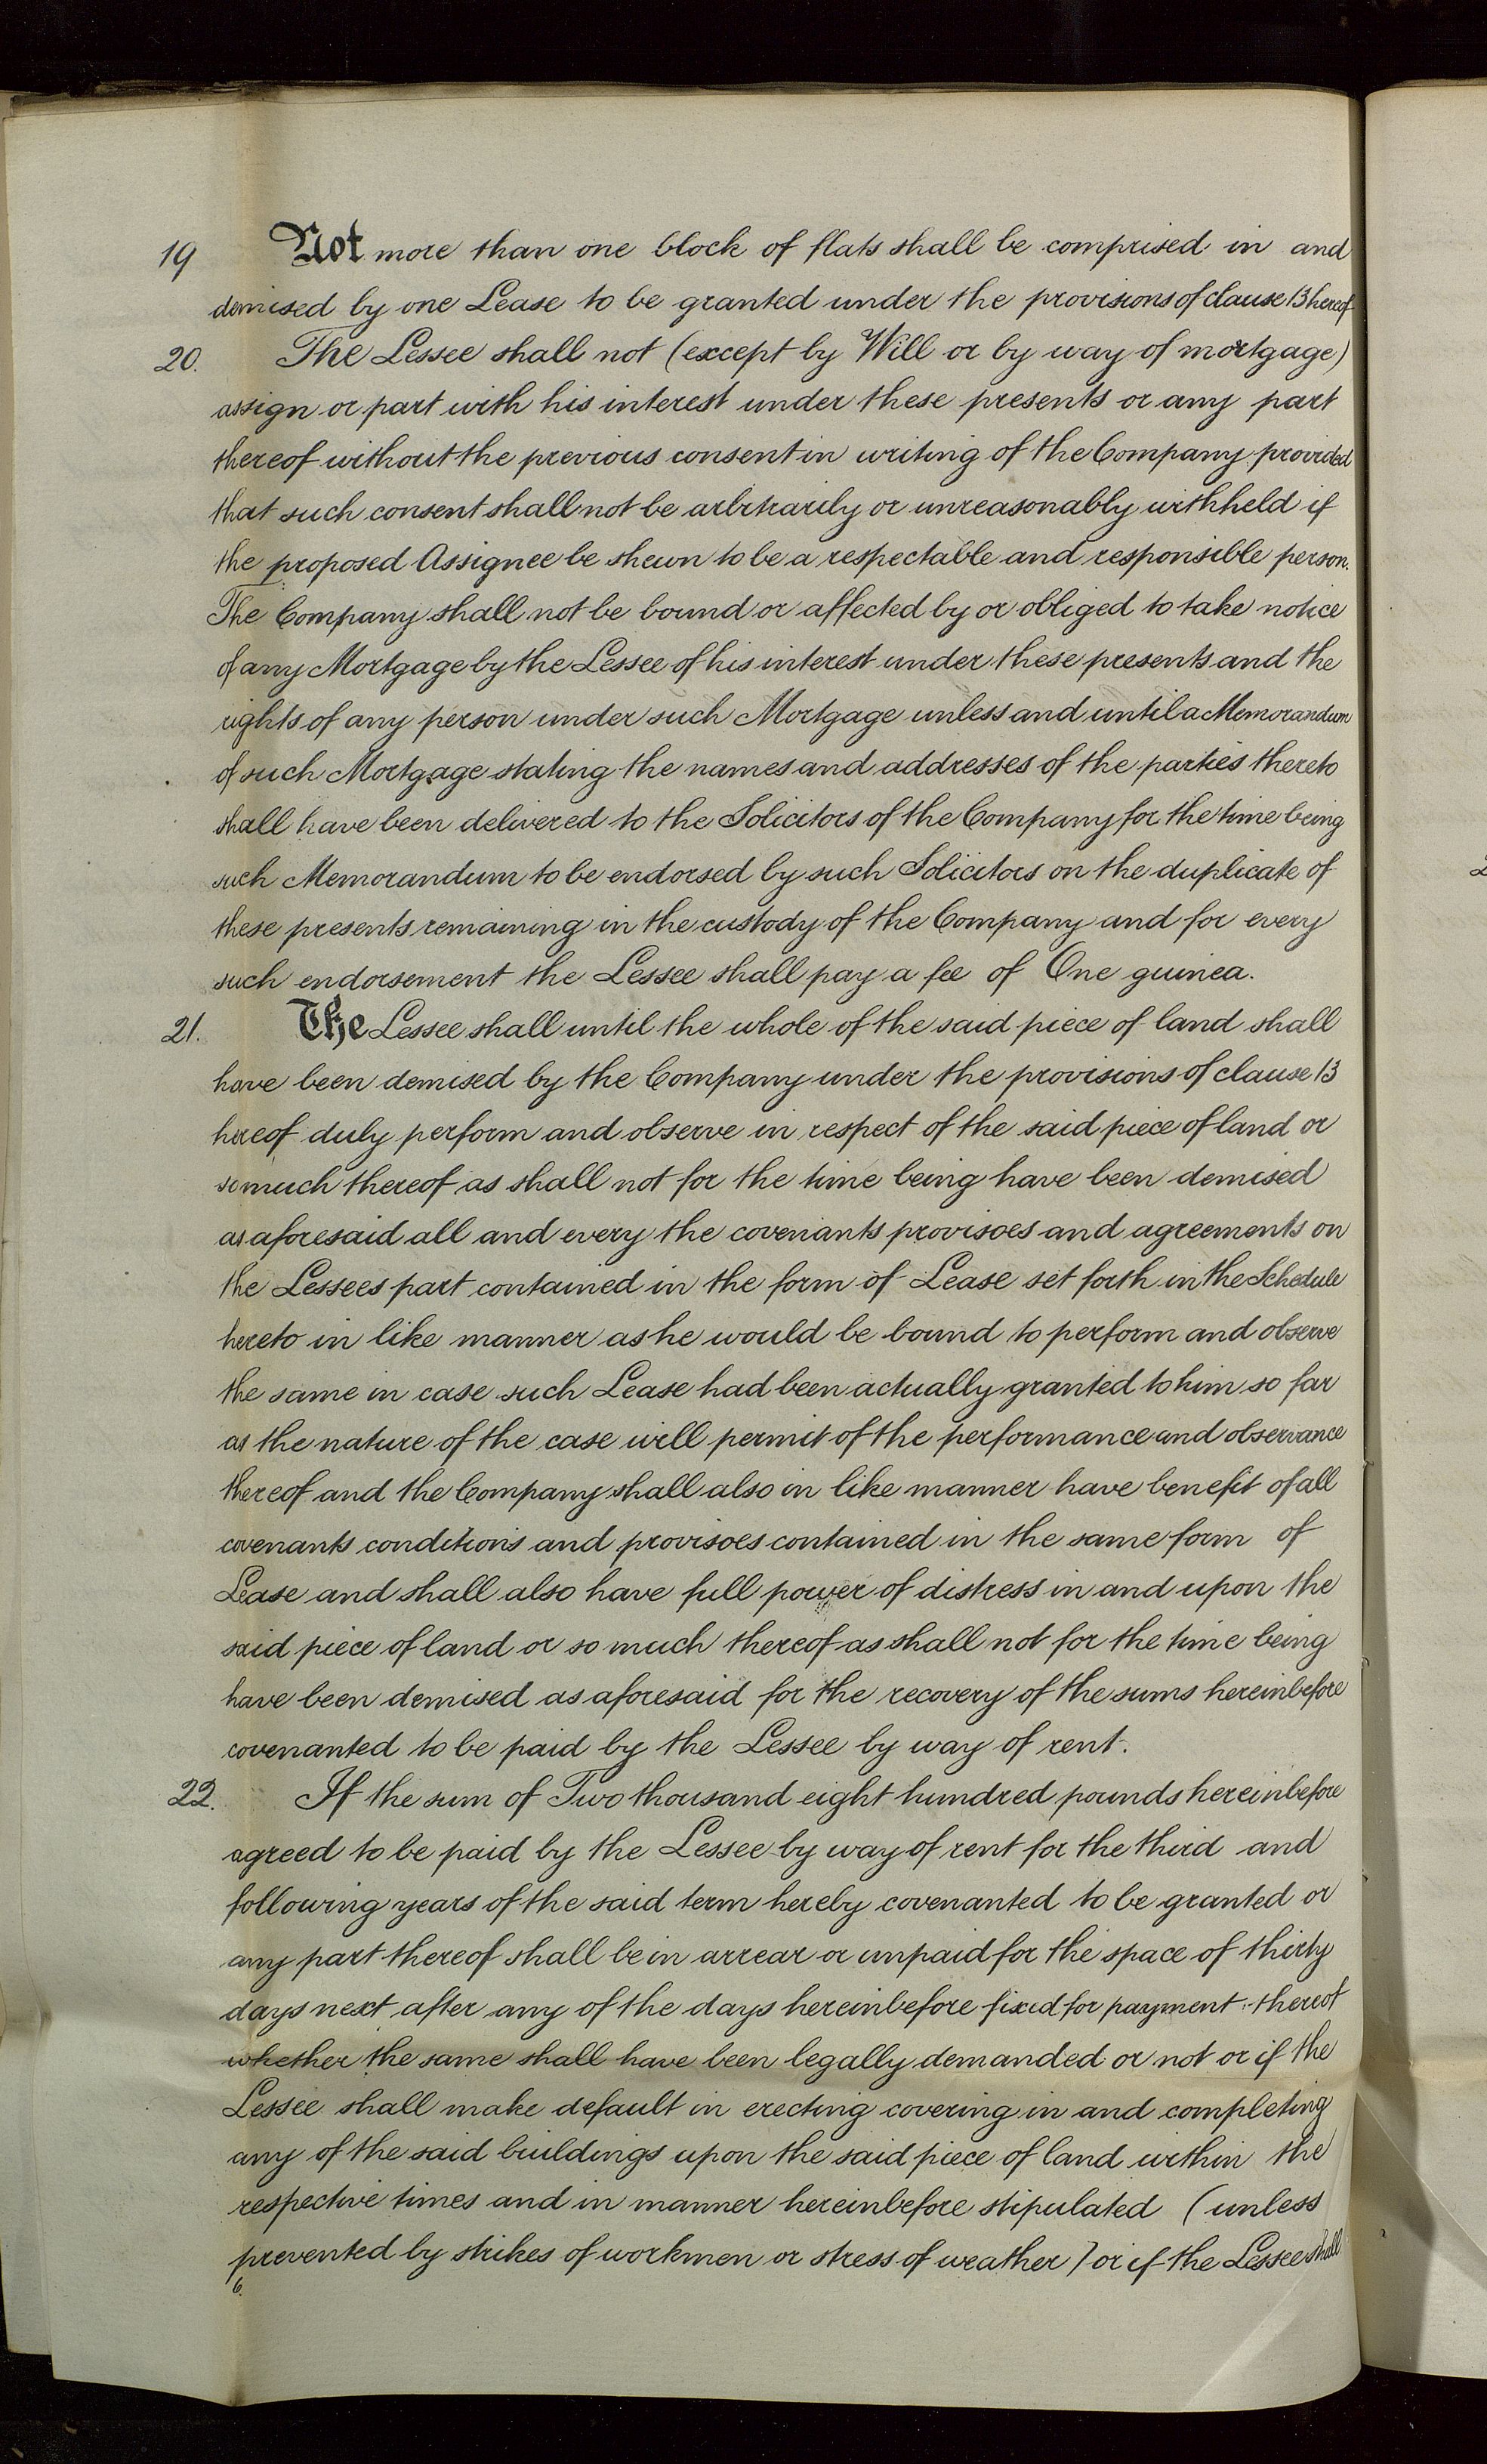 19 Not more than one block of flats shall be comprised in and
demised by one Lease to be granted under the provisions of clause 13 hereof
20. The Lessee shall not (except by Will or by way of mortgage)
assign or part with his interest under these presents or any part
thereof without the previous consent in writing of the Company provided
that such consent shall not be arbitrarily or unreasonably withheld if
the proposed Assignee be shewn to be a respectable and responsible person.
The Company shall not be bound or affected by or obliged to take notice
of any Mortgage by the Lessee of his interest under these presents and the
rights of any person under such Mortgage unless and until a Memorandum
of such Mortgage stating the names and addresses of the parties thereto
shall have been delivered to the Solicitors of the Company for the time being
such Memorandum to be endorsed by such Solicitors on the duplicate of
these presents remaining in the custody of the Company and for every
such endorsement the Lessee shall pay a fee of One guinea.
21. The Lessee shall until the whole of the said piece of land shall
have been demised by the Company under the provisions of clause 13
hereof duly perform and observe in respect of the said piece of land or
so much thereof as shall not for the time being have been demised
as aforesaid all and every the covenants provisoes and agreements on
the Lessees part contained in the form of Lease set forth in the Schedule
hereto in like manner as he would be bound to perform and observe
the same in case such Lease had been actually granted to him so far
as the nature of the case will permit of the performance and observance
thereof and the Company shall also in like manner have benefit of all
covenants conditions and provisoes contained in the same form of
Lease and shall also have full power of distress in and upon the
said piece of land or so much thereof as shall not for the time being
have been demised as aforesaid for the recovery of the sums hereinbefore
covenanted to be paid by the Lessee by way of rent.
22. If the sum of Two thousand eight hundred pounds hereinbefore
agreed to be paid by the Lessee by way of rent for the third and
following years of the said term hereby covenanted to be granted or
any part thereof shall be in arrear or unpaid for the space of thirty
days next after any of the days hereinbefore fixed for payment thereof
whether the same shall have been legally demanded or not or if the
Lessee shall make default in erecting covering in and completing
any of the said buildings upon the said piece of land within the
respective times and in manner hereinbefore stipulated (unless
prevented by strikes of workmen or stress of weather) or if the Lessee shall
6.